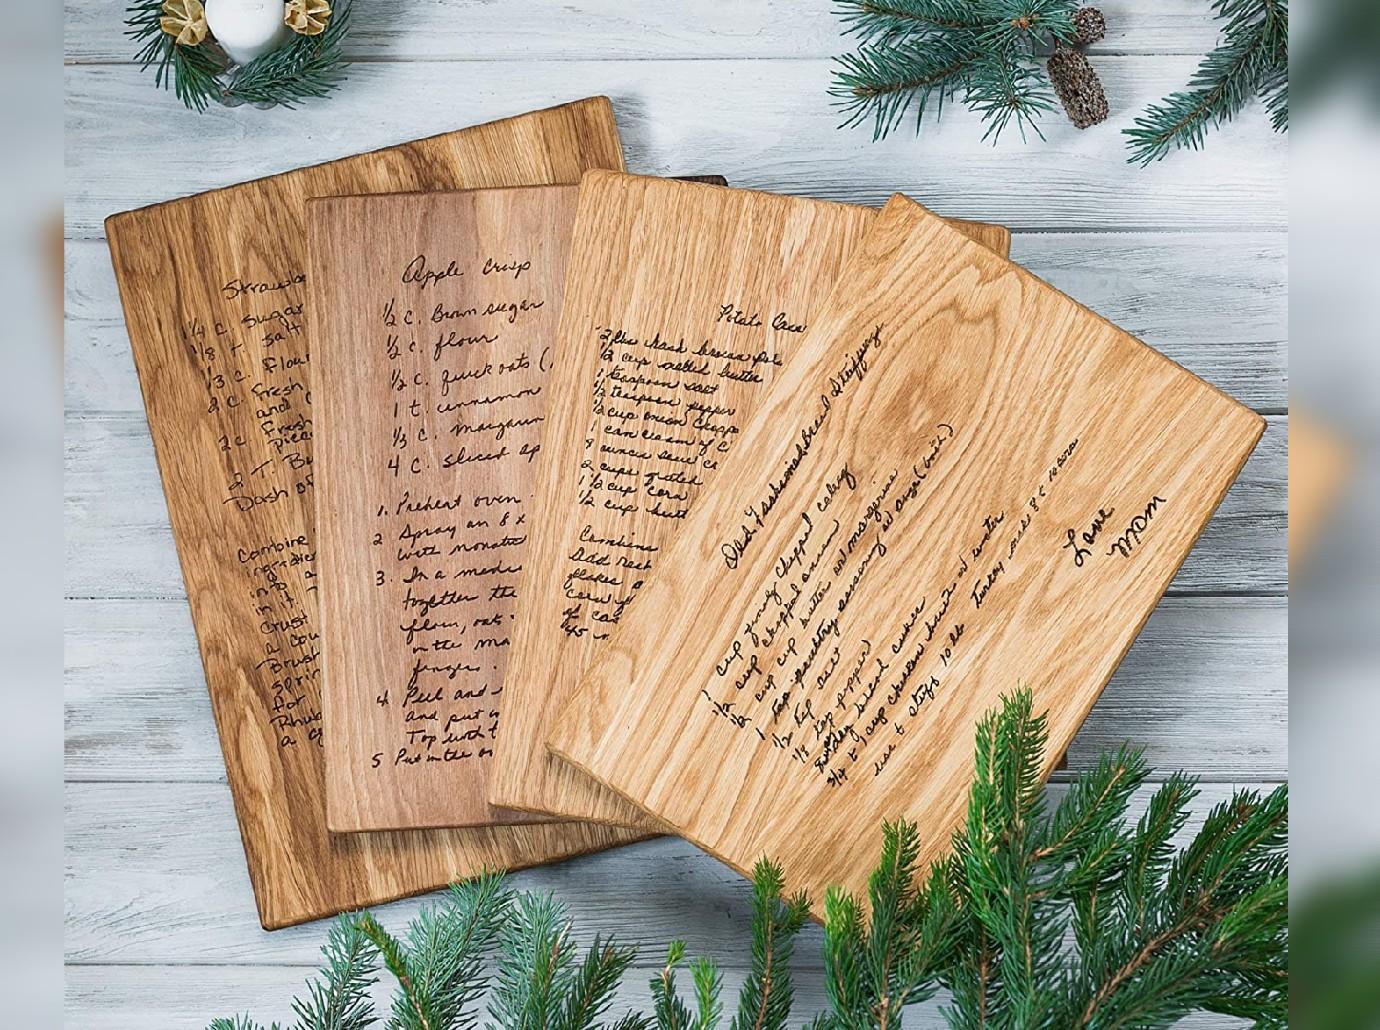 Strawbe
1/4 c. Sugar
1/8 t. salt
1/3 c. Flour
2 c. Fresh
and
2 c. Fresh
piece
2 T. Bu
Dash of
Combine
ingredien
into a
in it
Crust
a cou
Brush
Sprin
for
Rhub
a
Apple Crisp
1/2 c. Brown sugar
1/2 c. flour
1/2 c. quick oats (
1 t. cinnamon
1/3 c. margarin
4 c. sliced ap
1. Preheat oven
2 Spray an 8 x
with nonstic
3. In a medi
together the
flour, oats
in the ma
fingers.
4. Peel and
and put in
Top with t
5 Put in the ov
Potato Cass
2 lbs hash brown pota
1/2 cup melted butter
1 teaspoon salt
1/2 teaspoon pepper
1/2 cup onion chopp
1 can cream of c
8 ounces sour c
2 cups grated
1 1/2 cup corn
1/2 cup butt
Combine
Add rest
flakes
corn
of cas
45
Old Fashioned Bread Stuffing
1 cup finely chopped celery
1/2 cup chopped onion
1/2 cup butter or margarine
1 tsp poultry seasoning or sage
1/2 tsp salt
1/8 tsp pepper
8 cups dry bread cubes
3/4 to 1 cup chicken broth or water
use to stuff 10 lb turkey, makes 8 to 10 cups
Love
Mom